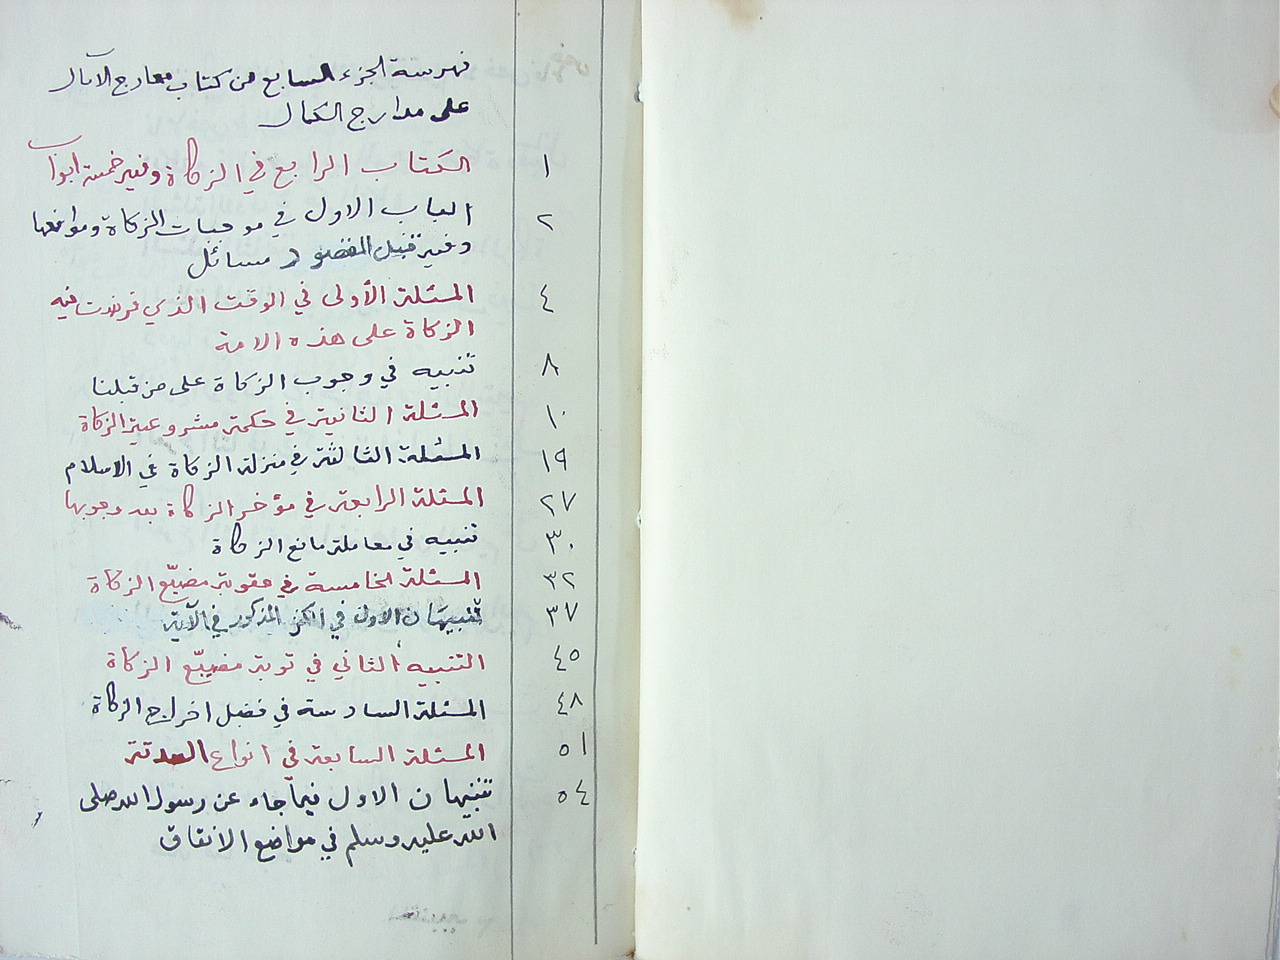 فهرسة الجزء السابع من كتاب معارج الآمال
على مدارج الكمال
١ الكتاب الرابع في الزكاة وفيه خمسة ابواب
٢ الباب الاول في موجبات الزكاة وموانعها
وفيه قبل المقصود مسائل
٤ المسئلة الأولى في الوقت الذي فرضت فيه
الزكاة على هذه الامة
٨ تنبيه في وجوب الزكاة على من قبلنا
١٠ المسئلة الثانية في حكمة مشروعية الزكاة
١٩ المسئلة الثالثة في منزلة الزكاة في الاسلام
٢٧ المسئلة الرابعة في مؤخر الزكاة بعد وجوبها
٣٠ تنبيه في معاملة مانع الزكاة
٣٢ المسئلة الخامسة في عقوبة مضيّع الزكاة
٣٧ تنبيهان الاول في الكنز المذكور في الآية
٤٥ التنبيه الثاني في توبة مضيّع الزكاة
٤٨ المسئلة السادسة في فضل اخراج الزكاة
٥١ المسئلة السابعة في انواع الصدقة
٥٤ تنبيهان الاول فيما جاء عن رسول الله صلى
الله عليه وسلم في مواضع الانفاق